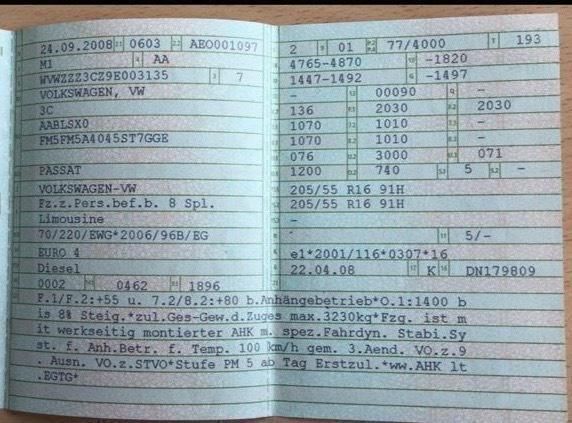 24.09.2008 0603 AEO001097
M1 AA
WVWZZZ3CZ9E003135 7
VOLKSWAGEN, VW
3C
AABLSX0
FM5FM5A4045ST7GGE
PASSAT
VOLKSWAGEN-VW
Fz.z.Pers.bef.b. 8 Spl.
Limousine
70/220/EWG*2006/96B/EG
EURO 4
Diesel
0002 0462 1896
2 01 77/4000 193
4765-4870 -1820
1447-1492 -1497
- 00090 -
136 2030 2030
1070 1010 -
1070 1010 -
076 3000 071
1200 740 5 -
205/55 R16 91H
205/55 R16 91H
-
- 5/-
e1*2001/116*0307*16
22.04.08 K DN179809
F.1/F.2:+55 u. 7.2/8.2:+80 b.Anhängebetrieb*O.1:1400 b
is 8% Steig.*zul.Ges-Gew.d.Zuges max.3230kg*Fzg. ist m
it werkseitig montierter AHK m. spez.Fahrdyn. Stabi.Sy
st. f. Anh.Betr. f. Temp. 100 km/h gem. 3.Aend. VO.z.9
. Ausn. VO.z.STVO*Stufe PM 5 ab Tag Erstzul.*ww.AHK lt
.EGTG*